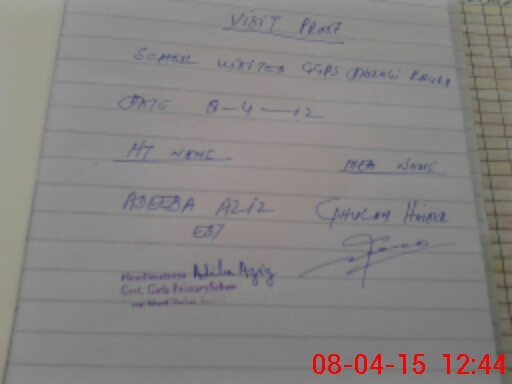 VISIT PROOF
SCHOOL VISITED GGPS
DATE 8-4-12
HT NAME
MEA NAME
ADEEBA AZIZ
GHULAM HAIDER
EST
Headmistress Adiba Aziz
Govt. Girls Primary School
08-04-15 12:44